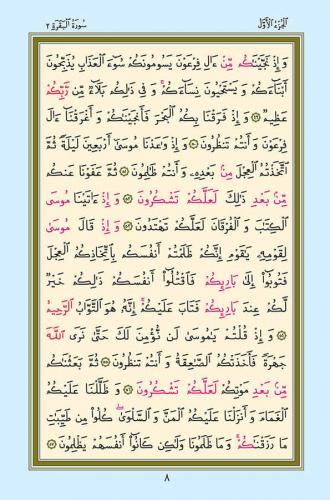 الجزء الأول
سورة البقرة ٢
وَإِذْ نَجَّيْنَاكُم مِّنْ ءَالِ فِرْعَوْنَ يَسُومُونَكُمْ سُوٓءَ ٱلْعَذَابِ يُذَبِّحُونَ
أَبْنَآءَكُمْ وَيَسْتَحْيُونَ نِسَآءَكُمْ وَفِى ذَٰلِكُم بَلَآءٌ مِّن رَّبِّكُمْ
عَظِيمٌ ٤٩ وَإِذْ فَرَقْنَا بِكُمُ ٱلْبَحْرَ فَأَنجَيْنَاكُمْ وَأَغْرَقْنَآ ءَالَ
فِرْعَوْنَ وَأَنتُمْ تَنظُرُونَ ٥٠ وَإِذْ وَٰعَدْنَا مُوسَىٰٓ أَرْبَعِينَ لَيْلَةً ثُمَّ
ٱتَّخَذْتُمُ ٱلْعِجْلَ مِنۢ بَعْدِهِۦ وَأَنتُمْ ظَالِمُونَ ٥١ ثُمَّ عَفَوْنَا عَنكُم
مِّنۢ بَعْدِ ذَٰلِكَ لَعَلَّكُمْ تَشْكُرُونَ ٥٢ وَإِذْ ءَاتَيْنَا مُوسَى
ٱلْكِتَٰبَ وَٱلْفُرْقَانَ لَعَلَّكُمْ تَهْتَدُونَ ٥٣ وَإِذْ قَالَ مُوسَىٰ
لِقَوْمِهِۦ يَٰقَوْمِ إِنَّكُمْ ظَلَمْتُمْ أَنفُسَكُم بِٱتِّخَاذِكُمُ ٱلْعِجْلَ
فَتُوبُوٓا۟ إِلَىٰ بَارِئِكُمْ فَٱقْتُلُوٓا۟ أَنفُسَكُمْ ذَٰلِكُمْ خَيْرٌ
لَّكُمْ عِندَ بَارِئِكُمْ فَتَابَ عَلَيْكُمْ إِنَّهُۥ هُوَ ٱلتَّوَّابُ ٱلرَّحِيمُ
٥٤ وَإِذْ قُلْتُمْ يَٰمُوسَىٰ لَن نُّؤْمِنَ لَكَ حَتَّىٰ نَرَى ٱللَّهَ
جَهْرَةً فَأَخَذَتْكُمُ ٱلصَّٰعِقَةُ وَأَنتُمْ تَنظُرُونَ ٥٥ ثُمَّ بَعَثْنَٰكُم
مِّنۢ بَعْدِ مَوْتِكُمْ لَعَلَّكُمْ تَشْكُرُونَ ٥٦ وَظَلَّلْنَا عَلَيْكُمُ
ٱلْغَمَامَ وَأَنزَلْنَا عَلَيْكُمُ ٱلْمَنَّ وَٱلسَّلْوَىٰ كُلُوا۟ مِن طَيِّبَٰتِ
مَا رَزَقْنَٰكُمْ وَمَا ظَلَمُونَا وَلَٰكِن كَانُوٓا۟ أَنفُسَهُمْ يَظْلِمُونَ ٥٧
٨